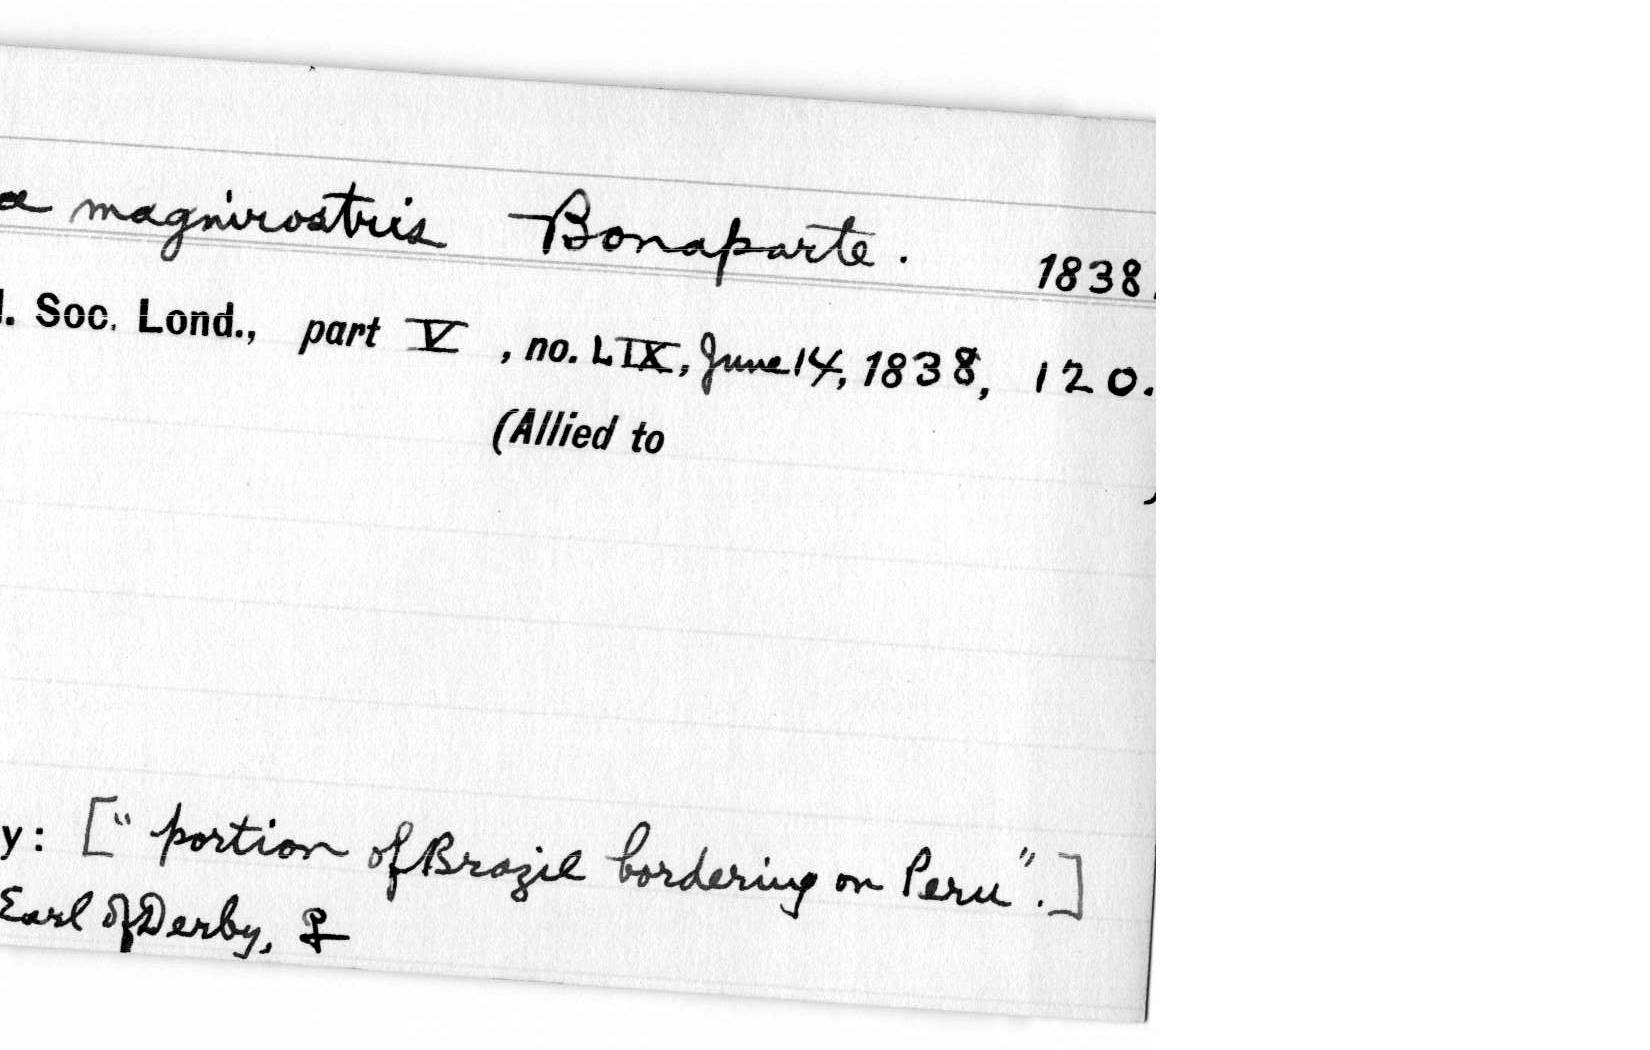 a magnirostris Bonaparte. 1838.
l. Soc. Lond., part V, no. LIX, June 14, 1838, 120.
(Allied to
)
y: [“portion of Brazil bordering on Peru”.]
Earl of Derby, ♀